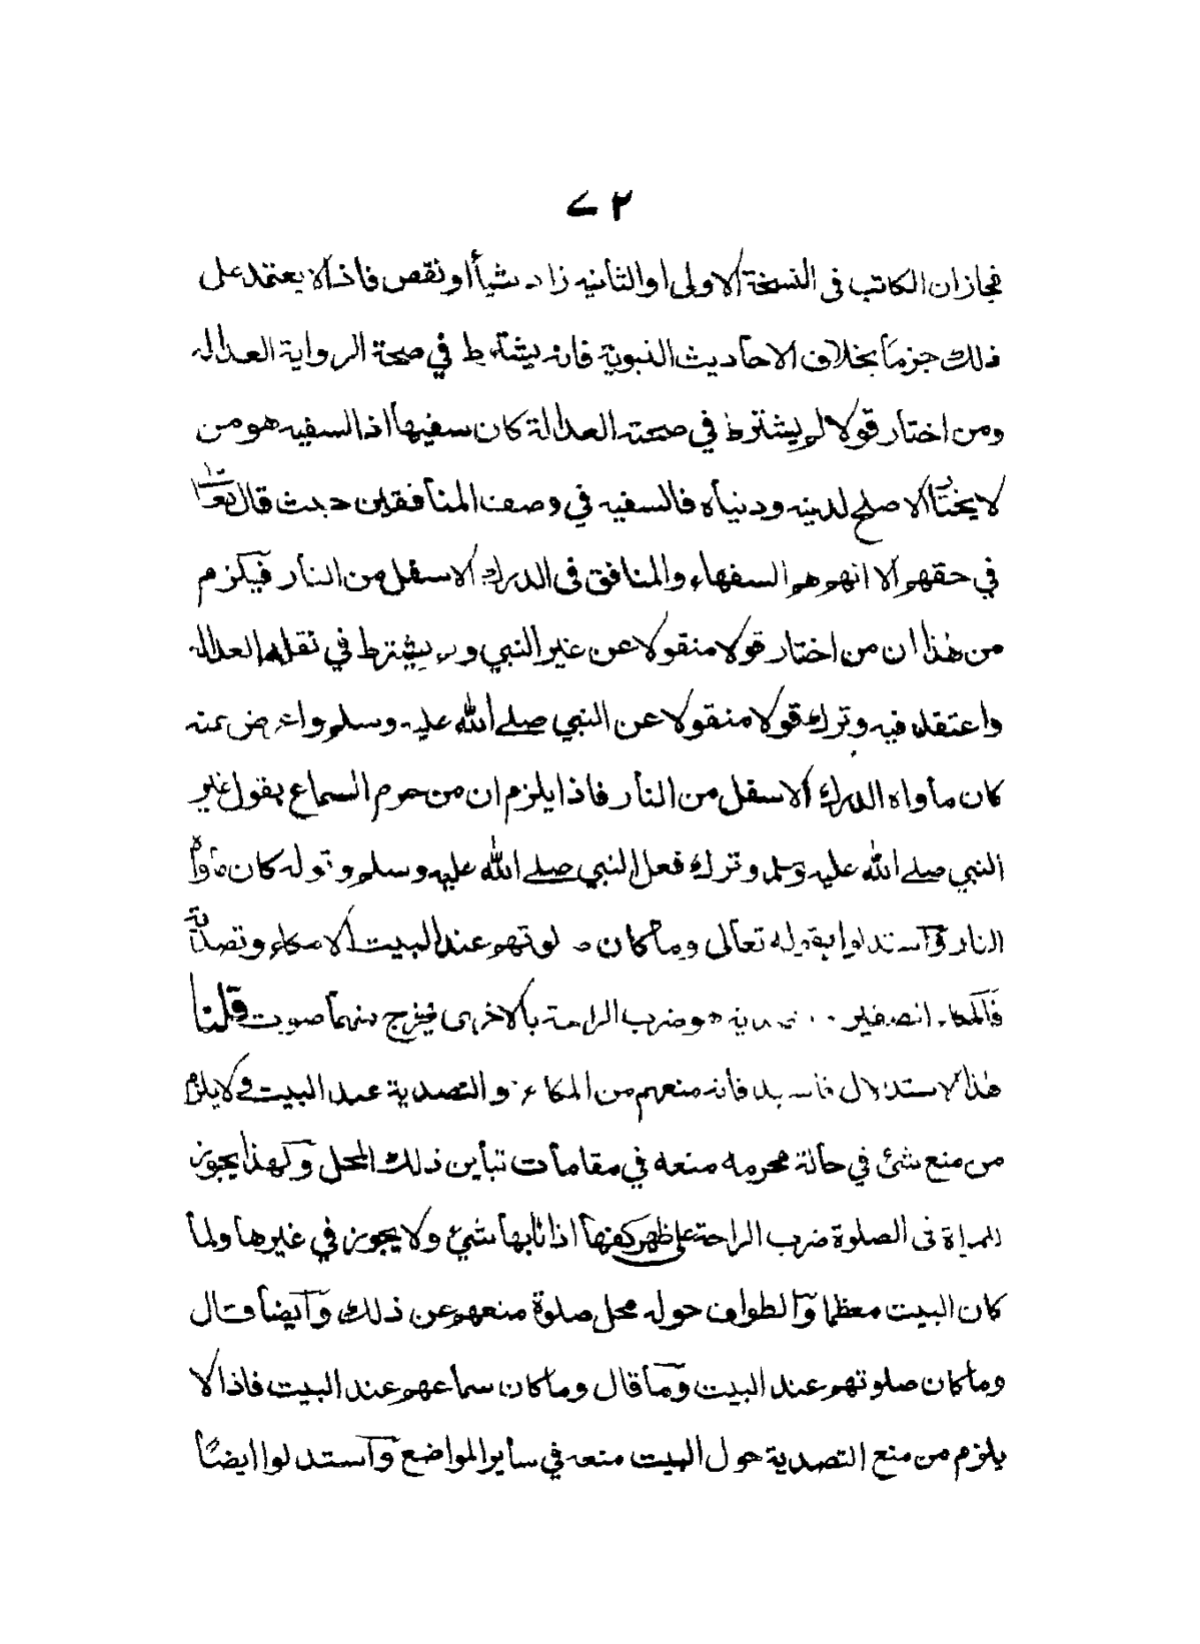 ٧٢
فجازان الكاتب فى النسخة الاولى اوالثانيه زاد شيأ او نقص فاذا لا يعتمد على
ذلك جزما بخلاف الاحاديث النبوية فانه يشترط في صحة الرواية العدالة
ومن اختار قولا لم يشترط في صحته العدالة كان سفيها اذ السفيه هو من
لا يختار الاصلح لدينه ودنياه فالسفيه في وصف المنافقين حيث قال تعالى
في حقهم الا انهم هم السفهاء والمنافق فى الدرك الاسفل من النار فيلزم
من هذا ان من اختار قولا منقولا عن غير النبي ولم يشترط في نقله العدالة
واعتقده فيه وترك قولا منقولا عن النبي صلے الله عليه وسلم واعرض عنه
كان مأواه الدرك الاسفل من النار فاذا يلزم ان من حرم السماع بقول غير
النبي صلے الله عليه وسلم وترك فعل النبي صلے الله عليه وسلم وقوله كان مأواه
النار وآستدلوا بقوله تعالى وما كان صلوتهم عند البيت الا مكاء وتصدية
فآلمكاء الصفير والتصدية هو ضرب الراحة بالاخرى فيخرج منهما صوت قلنا
هذا الاستدلال فاسد فانه منعهم من المكاء والتصدية عند البيت ولا يلزم
من منع شئ في حالة محرمه منعه في مقامات تباين ذلك المحل ولهذا يجوز
للمراة فى الصلوة ضرب الراحة على ظهر كفها اذا نابها شيئ ولا يجوز في غيرها ولما
كان البيت معظما وآلطواف حوله محل صلوة منعهم عن ذلك وآيضا قال
وما كان صلوتهم عند البيت وما قال وما كان سماعهم عند البيت فاذا لا
يلزم من منع التصدية حول البيت منعه في ساير المواضع وآستدلوا ايضًا